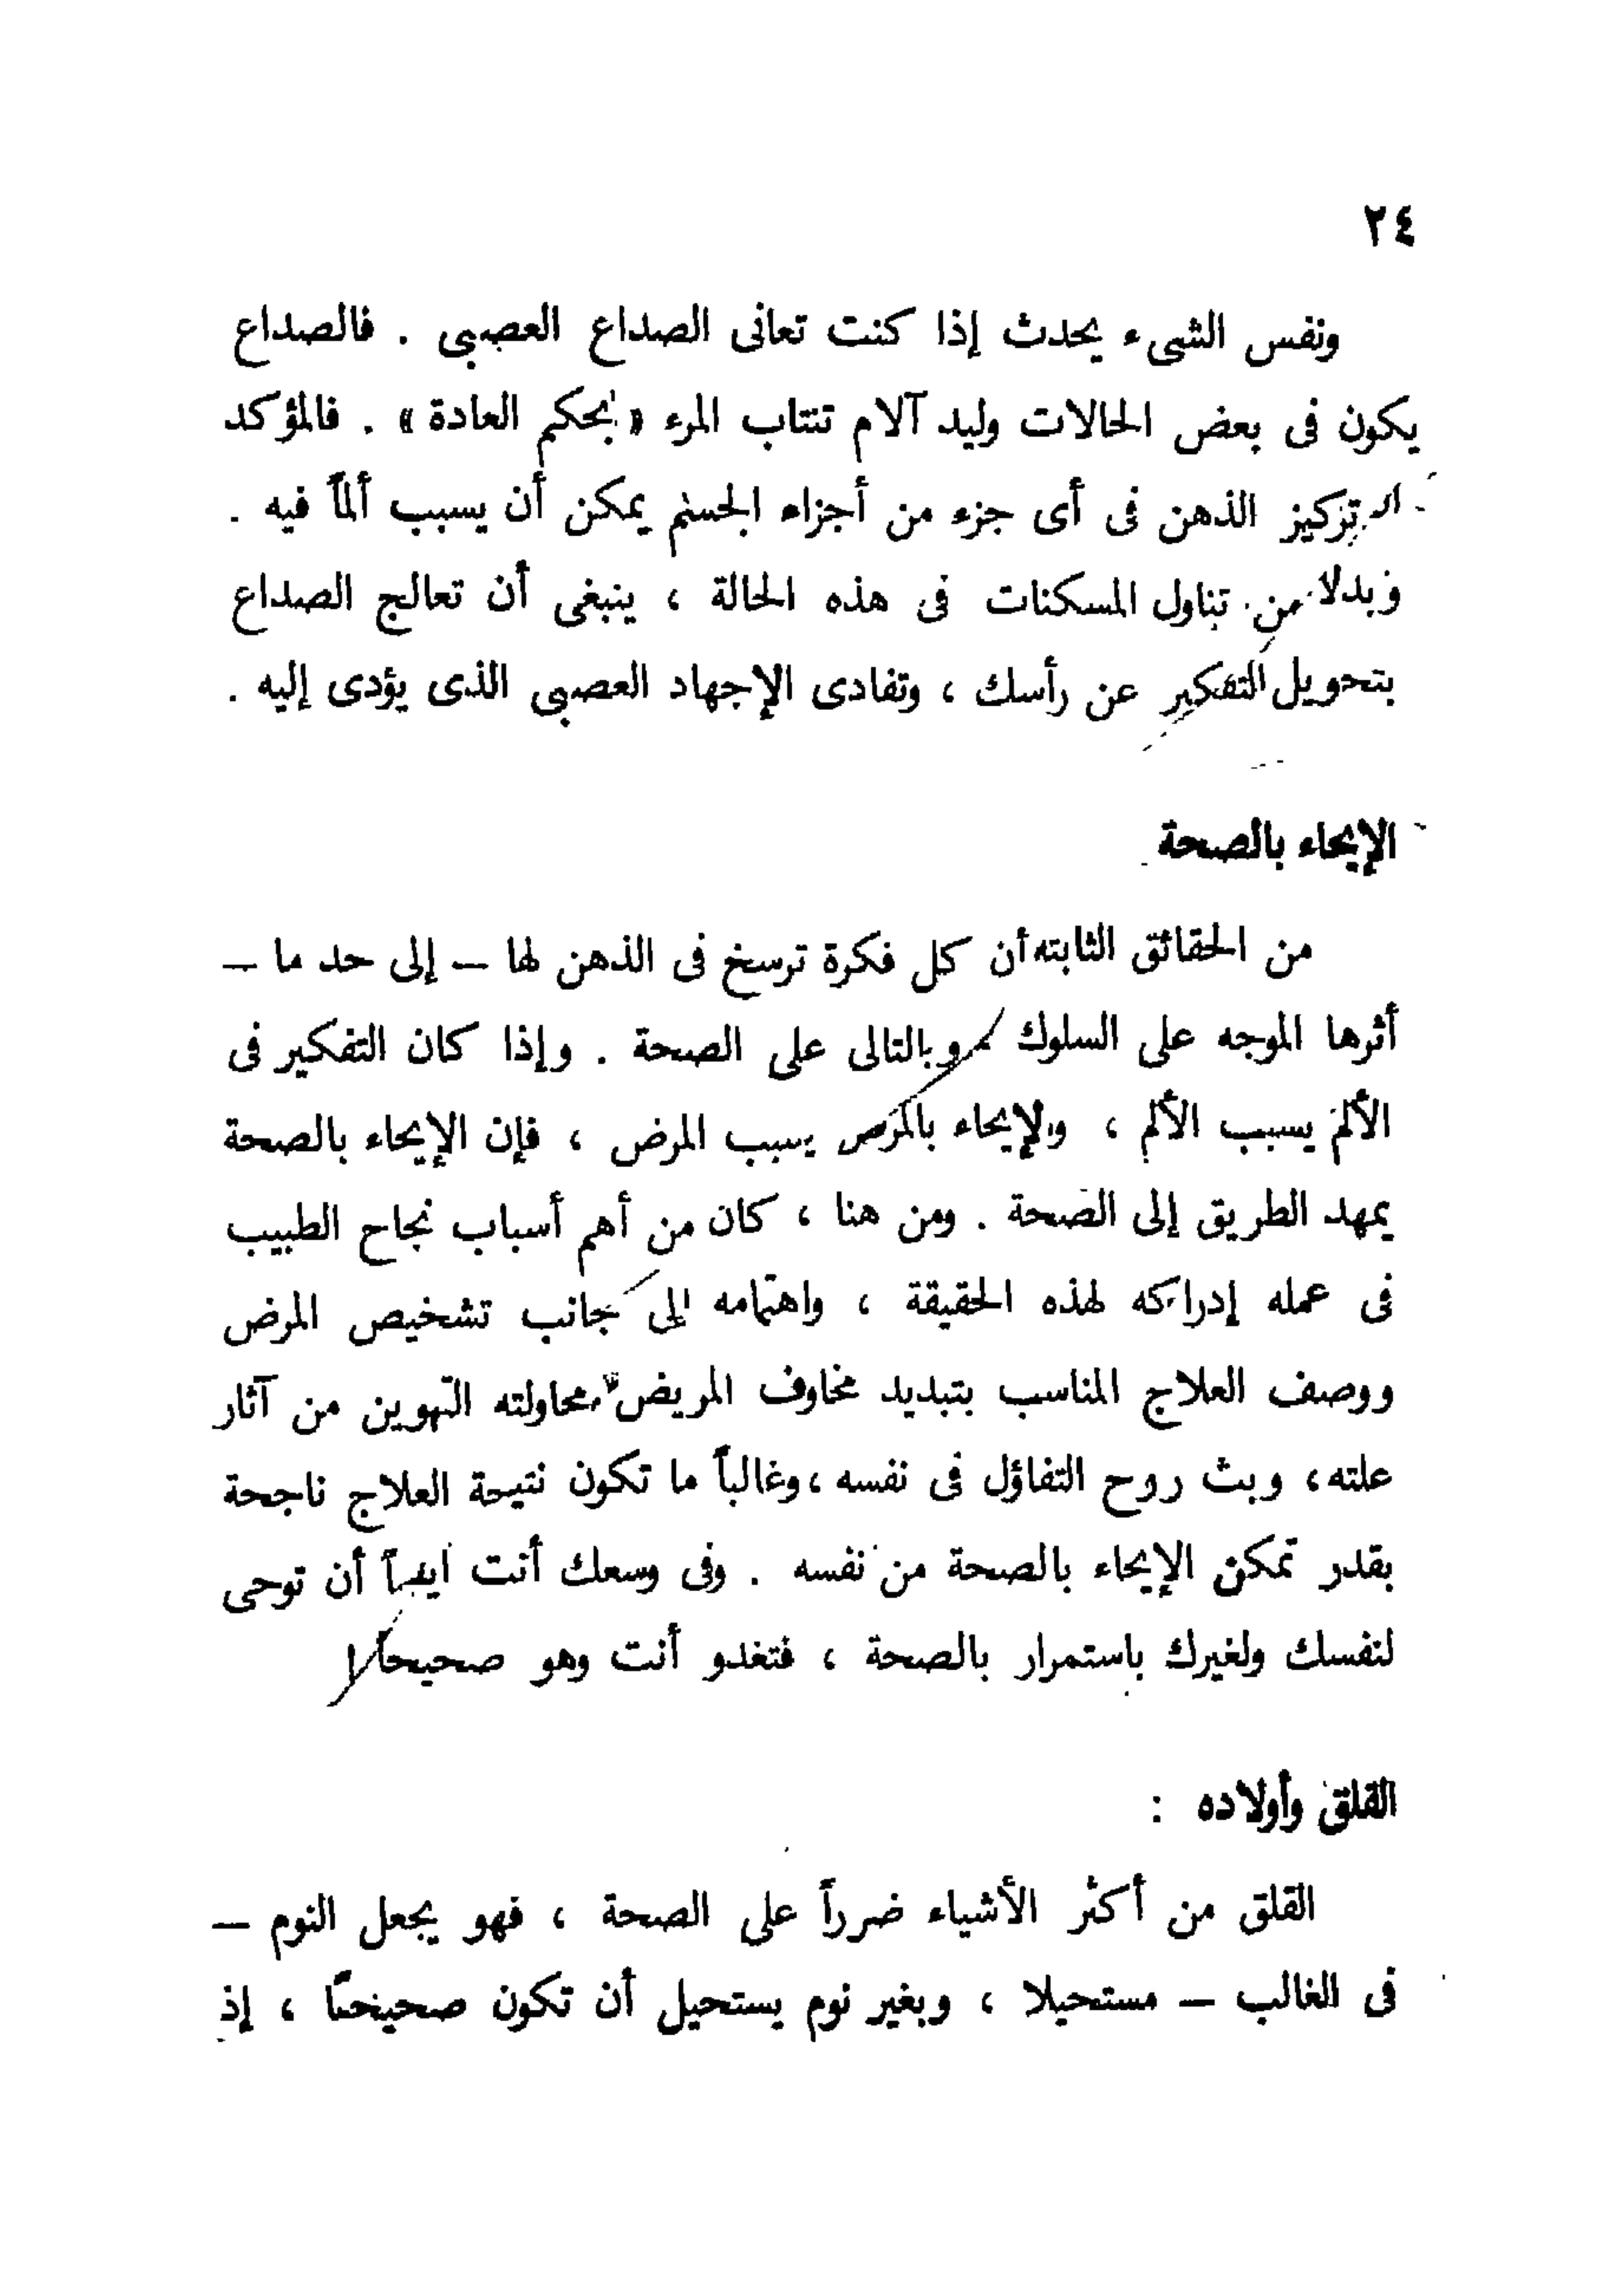 ٢٤
ونفس الشىء يحدث إذا كنت تعانى الصداع العصبى . فالصداع
يكون فى بعض الحالات وليد آلام تنتاب المرء « بحكم العادة » . فالمؤكد
تركيز الذهن فى أى جزء من أجزاء الجسم يمكن أن يسبب ألماً فيه .
وبدلا من تناول المسكنات فى هذه الحالة ، ينبغى أن تعالج الصداع
بتحويل التفكير عن رأسك ، وتفادى الإجهاد العصبى الذى يؤدى إليه .
الإيحاء بالصحة
من الحقائق الثابته أن كل فكرة ترسخ فى الذهن لها – إلى حد ما –
أثرها الموجه على السلوك وبالتالى على الصحة . وإذا كان التفكير فى
الألم يسبب الألم ، والإيحاء بالمرض يسبب المرض ، فإن الإيحاء بالصحة
يمهد الطريق إلى الصحة . ومن هنا ، كان من أهم أسباب نجاح الطبيب
فى عمله إدراكه لهذه الحقيقة ، واهتمامه إلى جانب تشخيص المرض
ووصف العلاج المناسب بتبديد مخاوف المريض محاولته التهوين من آثار
علته ، وبث روح التفاؤل فى نفسه ، وغالباً ما تكون نتيحة العلاج ناجحة
بقدر تمكن الإيحاء بالصحة من نفسه . وفى وسعك أنت أيضاً أن توحى
لنفسك ولغيرك باستمرار بالصحة ، فتغدو أنت وهو صحيحاً
القلق وأولاده :
القلق من أكثر الأشياء ضرراً على الصحة ، فهو يجعل النوم –
فى الغالب – مستحيلا ، وبغير نوم يستحيل أن تكون صحيحًا ، إذ